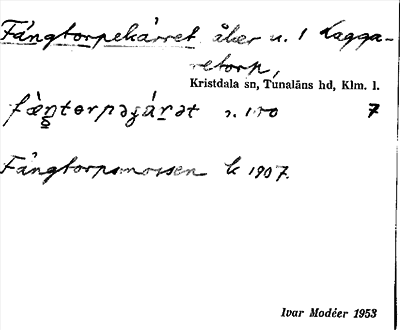 Fångtorpekärret åker u. 1 Lagga-
retorp,
Kristdala sn, Tunaläns hd, Klm. l.
7
Fångtorpsmossen k 1907.
Ivar Modéer 1953